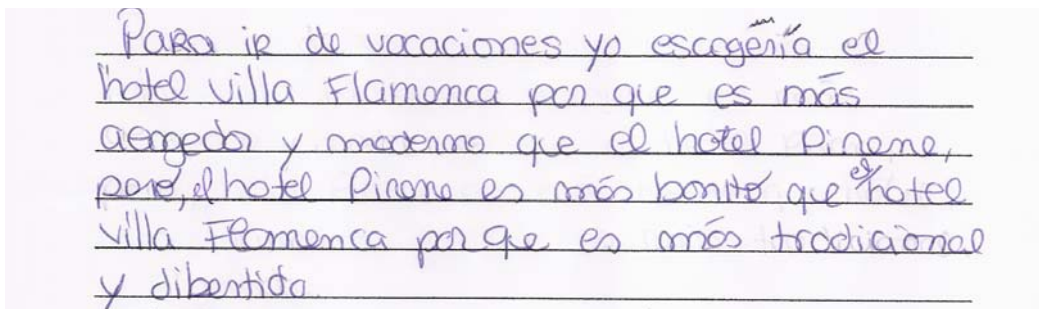 Para ir de vacaciones yo escogería el
hotel villa Flamenca por que es más
y moderno que el hotel Pirene,
pero, el hotel Pirene es más bonito que el hotel
villa Flamenca por que es más tradicional
y dibertido